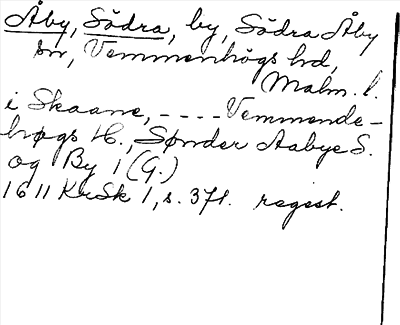 Åby, Södra, by, Södra Åby
sn, Vemmenhögs hd,
Malm. l.
i Skaane, - - - - Vemmende-
høgs H., Sønder Aabye S.
og By 1 (G.)
1611 KrSk 1, s. 371. regest.